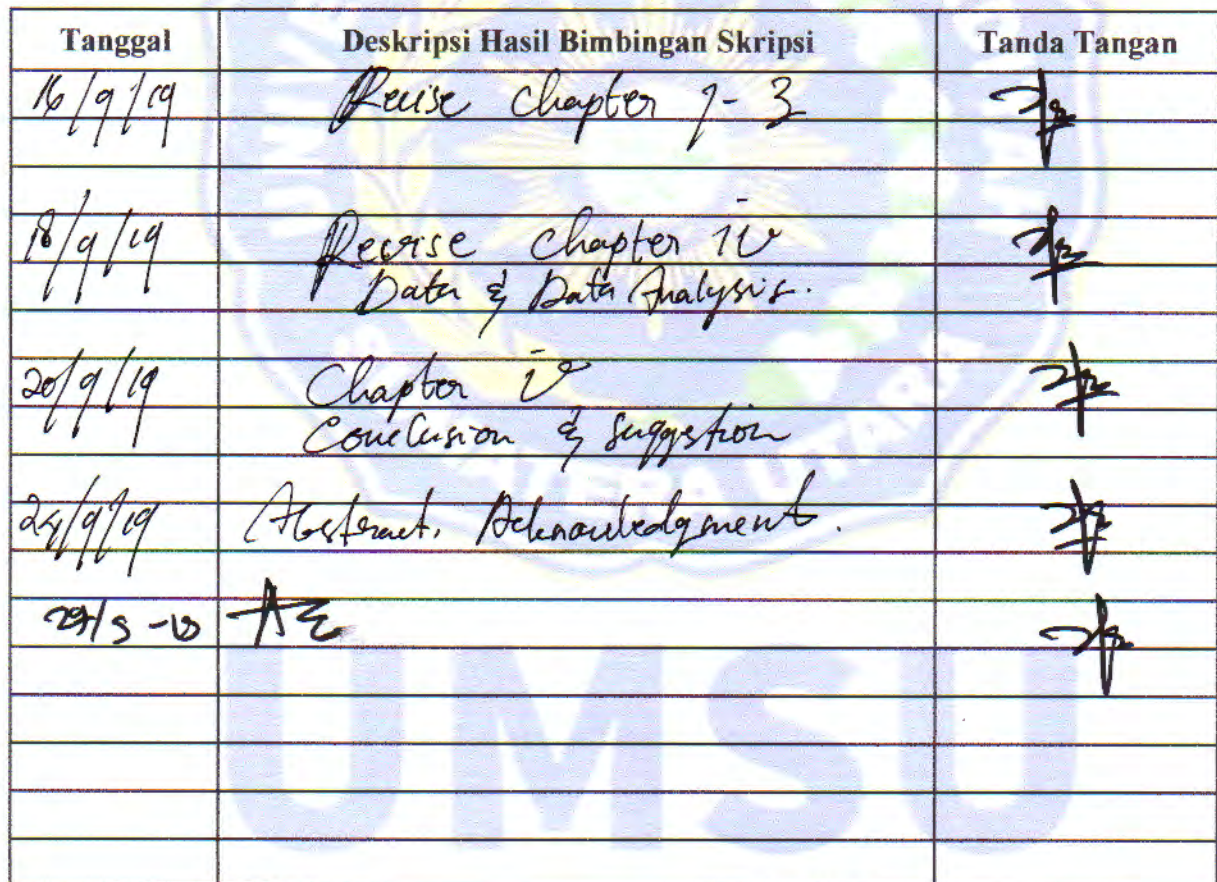 Tanggal Deskripsi Hasil Bimbingan Skripsi Tanda Tangan
16/9/19 Revise Chapter 1-3
18/9/19 Revise Chapter iv
Data & Data Analysis.
20/9/19 Chapter v
Conclusion & Suggestion
24/9/19 Abstract. Acknowledgment.
UMSU